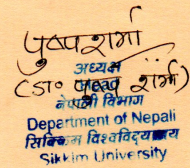 पुष्प शर्मा
अध्यक्ष
(डा० पुष्प शर्मा)
नेपाली विभाग
Department of Nepali
सिक्किम विश्वविद्यालय
Sikkim University